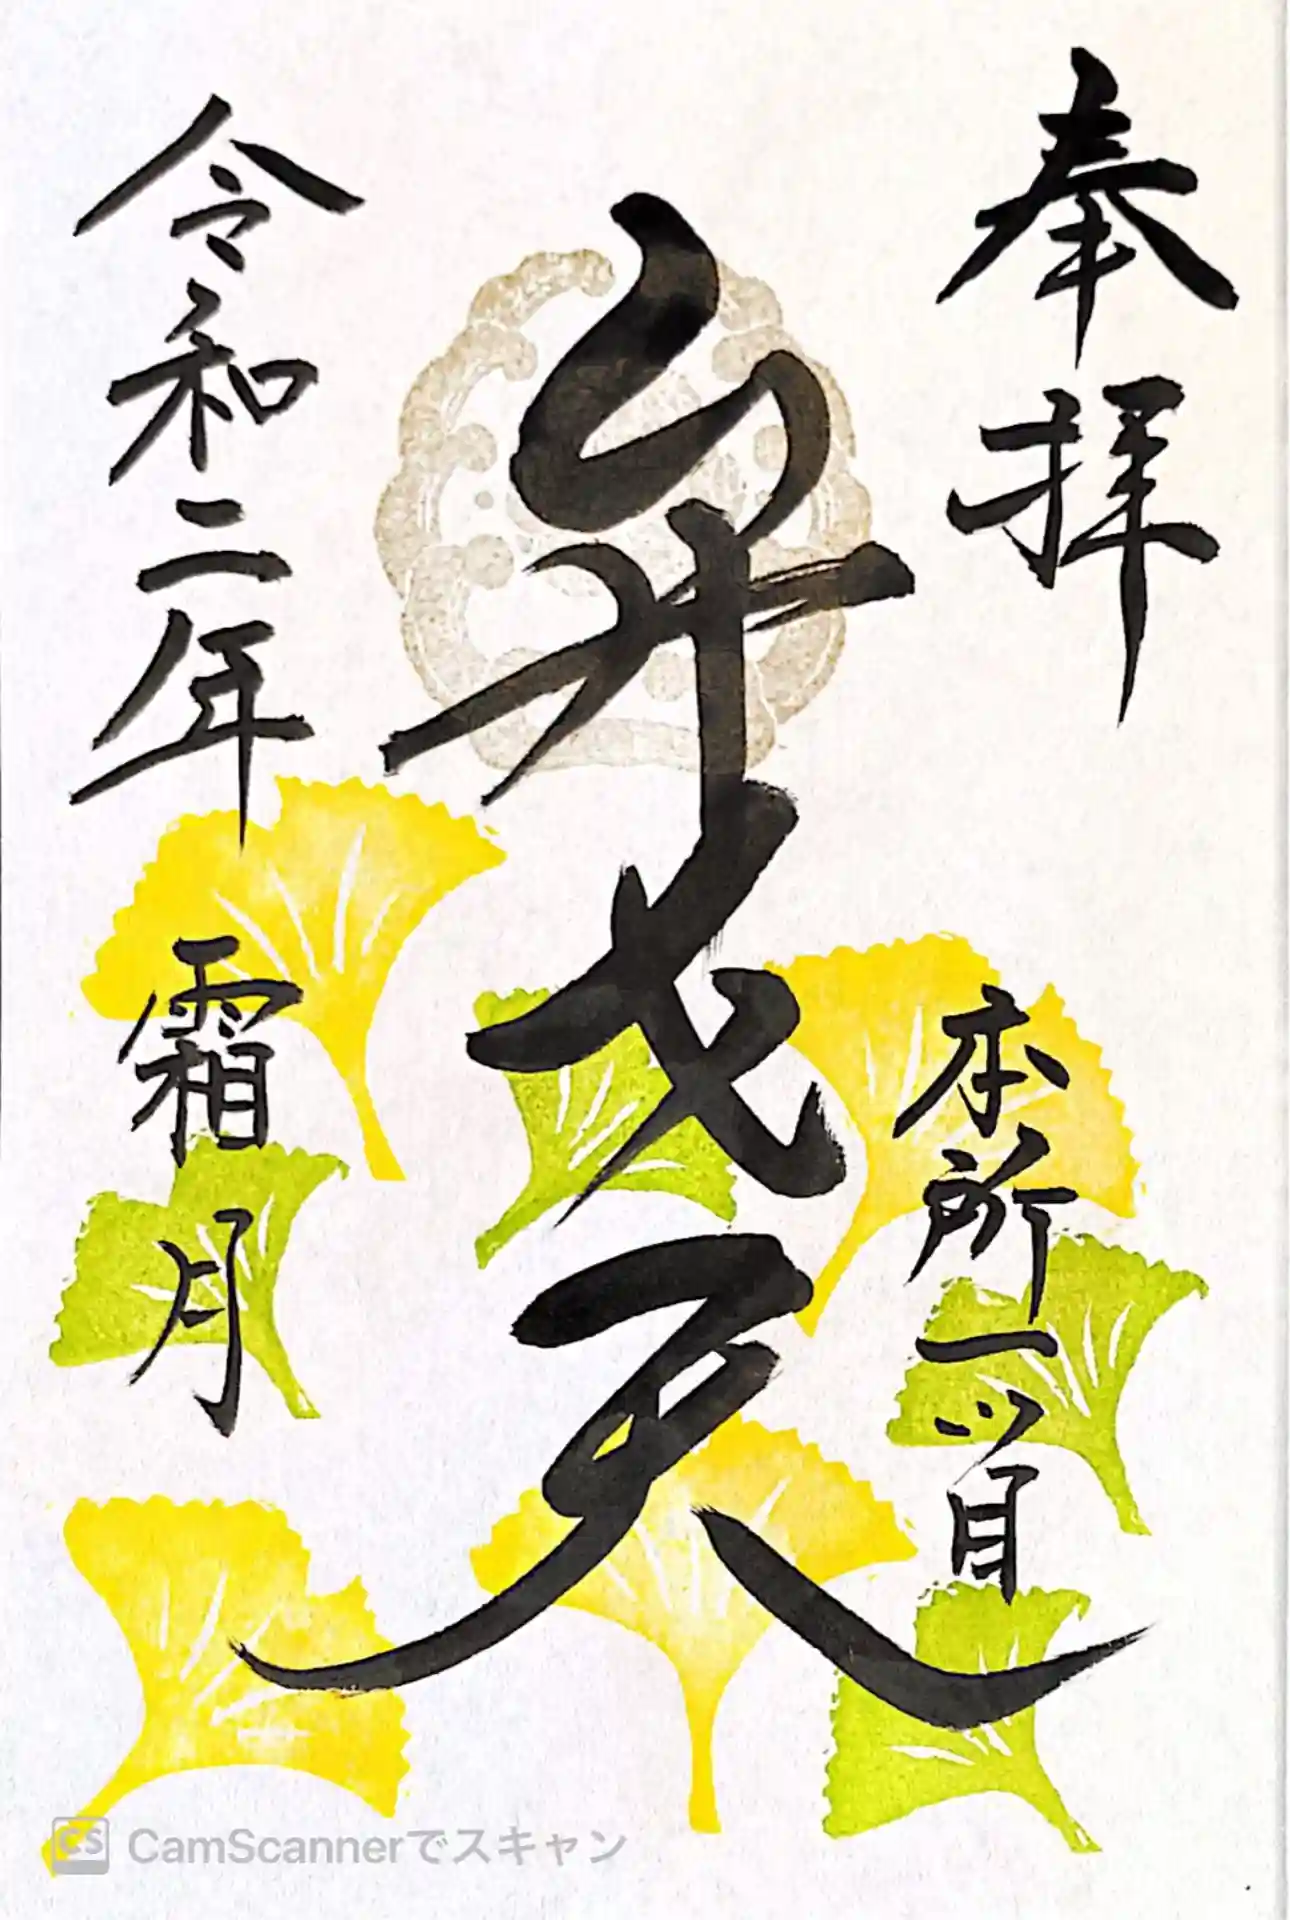 奉拝
本所一ツ目
弁才天
令和二年
霜月
CS CamScannerでスキャン